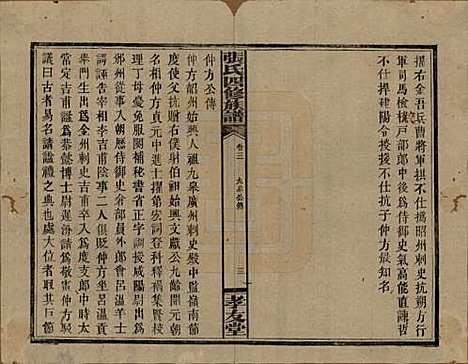 擢右金吾兵曹將軍拱不捍昭州刺史抗朔方行
軍司馬檢校戸部郎中後爲侍御史幼直諫哲
不仕捍建陽令授授不仕抗子仲方最知名
張氏四修族譜
卷三
九皋公傳
三
孝友堂
仲方公傳
仲方韶州始興人祖九皋廣州刺史殿中監嶺南節
度使父抗贈右僕射伯祖始興文獻公九齡開元朝
名相仲方貞元中進士擢第宏詞登科釋褐集賢校
理丁母憂免服闋補秘書省正字調授咸陽尉出爲
邠州從事入朝歷侍御史倉部員外郎會呂溫羊士
諤誣告宰相李吉甫陰事二人俱貶仲方坐呂溫貢
舉門生出爲金州刺史吉甫卒入爲度支郎中時太
常定吉甫謚爲恭懿博士尉遲汾請爲敬憲仲方駁
議曰古者易名請謚禮之典也處大位者取其巨節